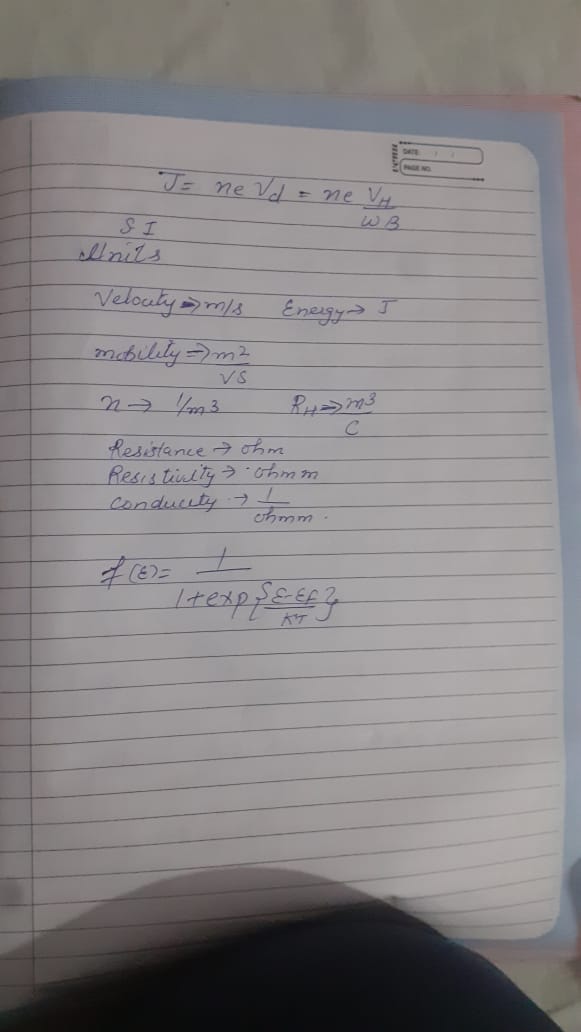 DATE: / /
PAGE NO.
J = neVd = ne VH/WB
SI
Units
Velocity → m/s Energy → J
mobility ⇒ m²/VS
n → 1/m3 RH ⇒ m3/C
Resistance → ohm
Resistivity → ohmm
Conducity → 1/ohmm.
f(E) = 1/1+exp{E-EF/KT}